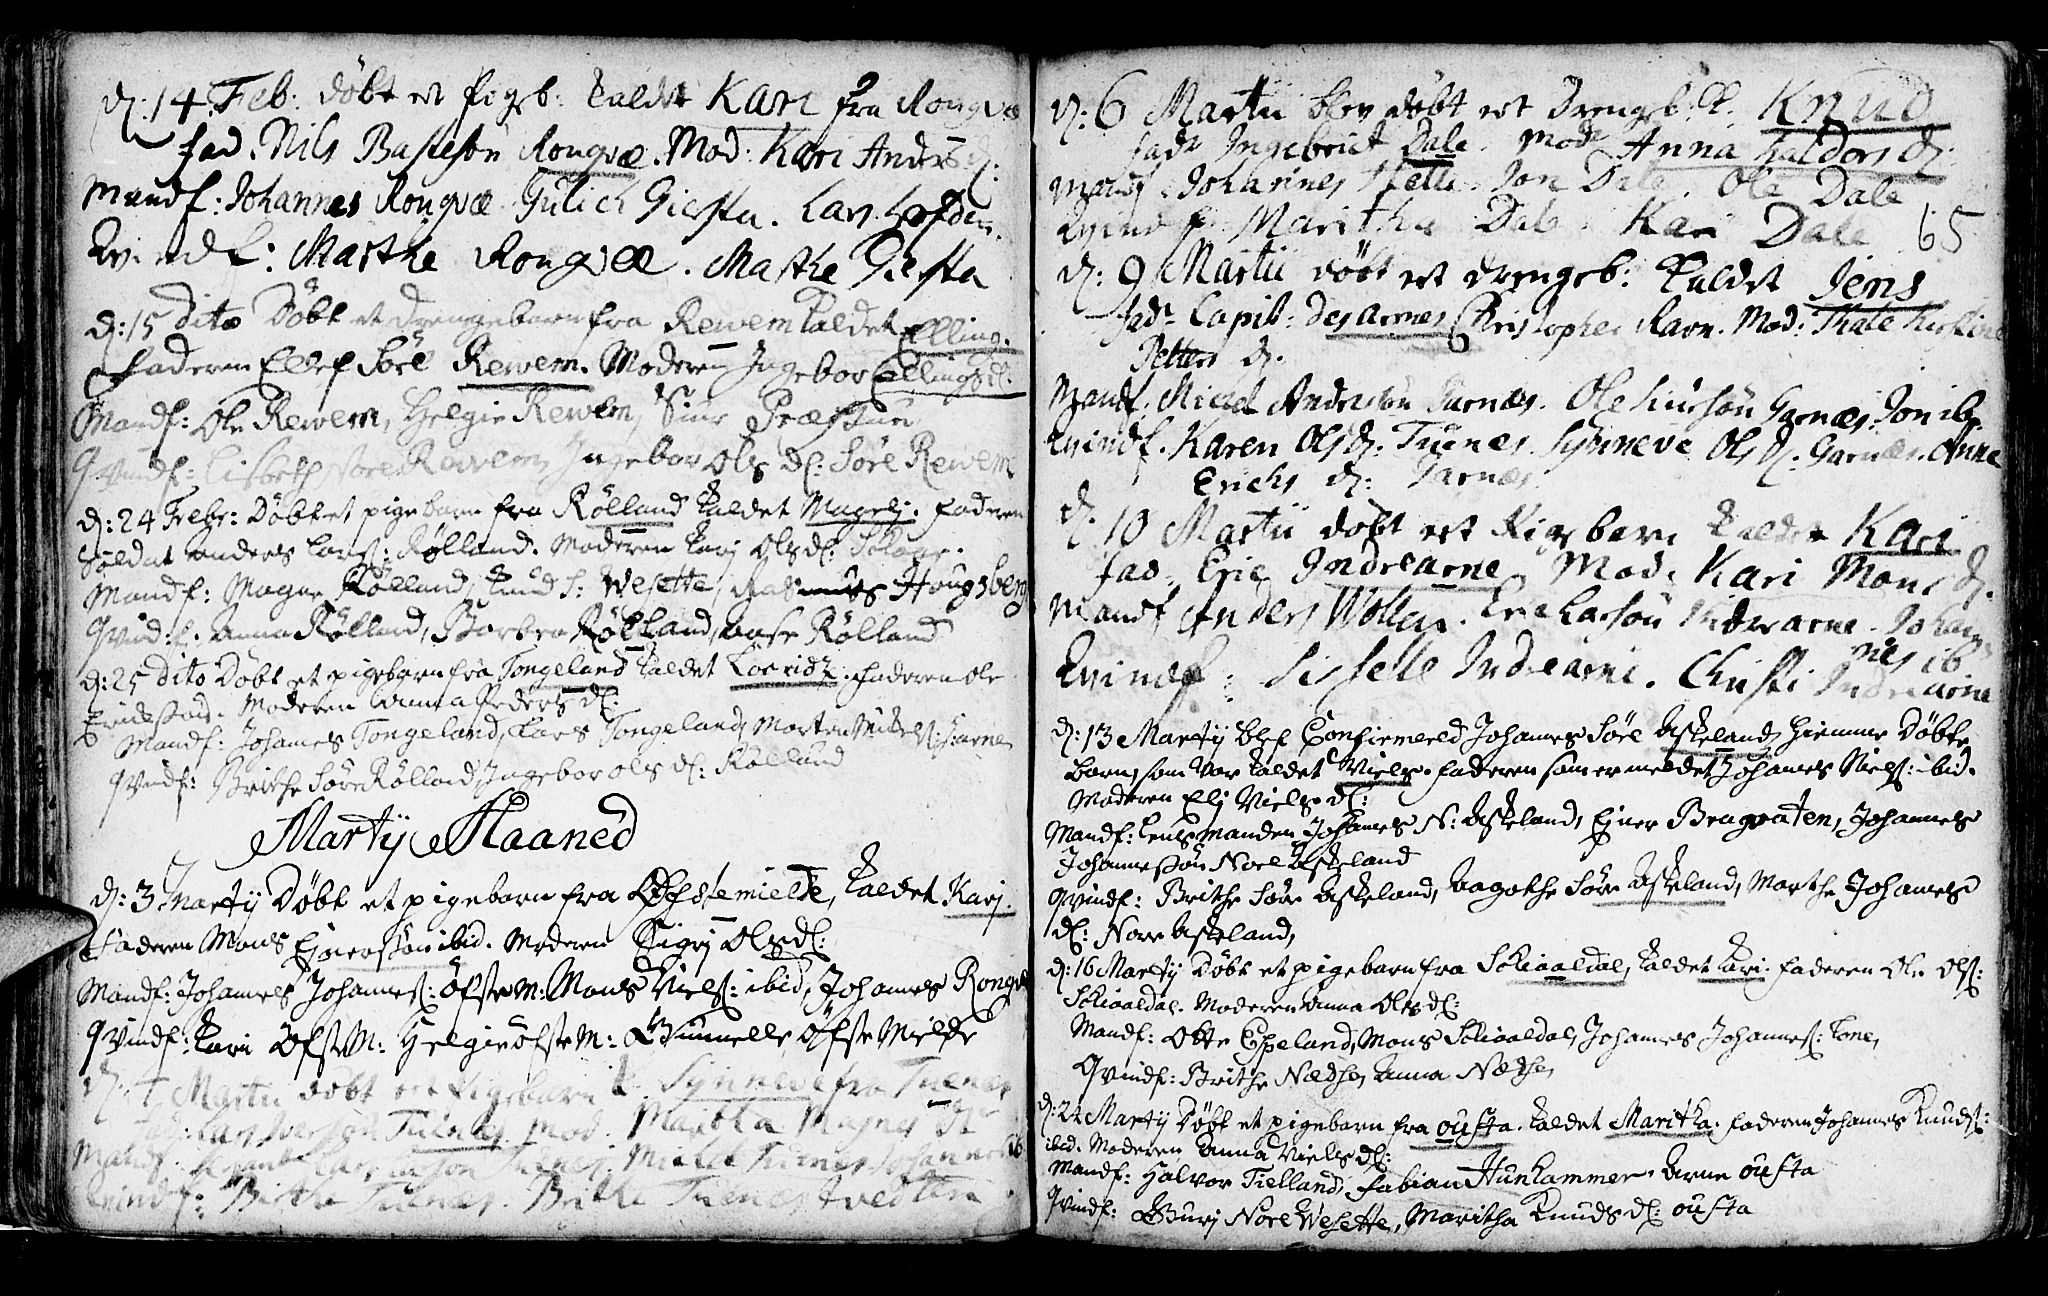 d: 14 Feb: döbt et Pigeb: kaldet Kari fra Rongvæ
fad. Nils Bastesön Rongvæ. Mod: Kari Anders d:
Mandf: Johannes Rongvæ Gulich Giersta. Lars
Kvindf: Marthe Rongvæ. Marthe Giersta
d: 15 dito Döbt et drengebarn fra Rewem kaldet Elling.
Faderen Ellef Söre Rewem. Moderen Ingebor Ellings d:
Mandf: Ole Rewem, Helgie Rewem, Siur
Qvindf: Lisbeth Nore Rewem, Ingebor Ols d: Söre Rewem
d: 24 Febr: Döbt et pigebarn fra Rølland kaldet Mageli. Faderen
Soldat Anders Lars: Rølland. Moderen Kari Olsd:
Mandf: Magne Rølland, Knud S: Wesette, Rasmus Hougsberg
Qvind:f. Anna Rølland, Barbra Rølland, Aase Rølland
d: 25 dito Döbt et pigebarn fra Tongeland kaldet. Faderen Ole
Erickssøn. Moderen Anna Peders d:
Mandf: Johannes Tongeland, Lars Tongeland, Morten
Qvindf: Brithe Søre Rølland, Ingebor Ols d: Rølland
Martij Maaned
d: 3 Martij Döbt et pigebarn fra Øfstemielde, kaldet Karj.
Faderen Mons Ejnersøn ibid. Moderen Sigrj Olsd:
Mandf: Johannes Johannes: Öfste M: Mons Niels: ibid, Johannes Rongvæ
Qvindf: Kari Öfste M: Helgie Öfste M: Gunnelle Öfste Mielde
d. 4 Martii döbt et Pigebarn k. Synneve fra Tuenes
fad: Lars Iversøn Tuenes mod. Maritha Magnes d:
Mandf.
Kvindf: Brithe Tuenes. Brithe Tuenes
d: 6 Martii blev döbt et Drengb: k. Knud
fad: Ingebrict Dale. Mod: Anna Haldors d:
Mandf. Johannes Jon Dale. Ole Dale
Kvindf. Maritha Dale. Kari Dale
65
d: 9 Martii döbt et drengeb: kaldet Jens
fad: Capit: des armes Christopher Ravn. Mod: Thale Kirstine
Petters d.
Mandf. Michel Andersön Garnæs. Ole Garnæs. Jon ib.
Kvindf. Karen Olsd: Tuenes. Synneve Ols d: Garnæs. Anne
Erichs d: Garnæs.
d. 10 Martii döbt et Pigebarn kaldet Kari
fad. Eric Indrearne Mod. Kari Mons d.
Mandf Anders Wollen. Eric Larsön Indrearne. Johan
nes ib
Kvindf: Sisselle Indrearne. Christi Indrearne
d: 13 Martij blef Confirmerld Johannes Söre Askeland hiemme Döbte
barn, som var kaldet Niels. Faderen som er meldet Johannes Niels: ibid.
Moderen Eli Niels d:
Mandf: Lensmanden Johannes N: Askeland, Ejner Bragvaten, Johannes
Johannessön Nore Askeland
Qvindf: Brithe Søre Askeland, Aagothe Søre Askeland, Marthe Johannes
d: Nore Askeland,
d: 16 Martij Döbt et pigebarn fra Schiaaldal, kaldet Kari. Faderen Ole Ols:
Schiaaldal. Moderen Anna Ols d:
Mandf: Otte Espeland, Mons Schiaaldal, Johannes Johannes: Lone,
Qvindf: Brithe Nædthe, Anna Nædthe,
d: 24 Martij Döbt et pigebarn fra Ousta. kaldet Maritha. Faderen Johannes Knuds:
ibid. Moderen Anna Niels d:
Mandf: Halvor Tielland, Fabian Hunhammer. Arne Ousta
Qvindf: Gurj Nore Wesette, Maritha Knuds d: Ousta